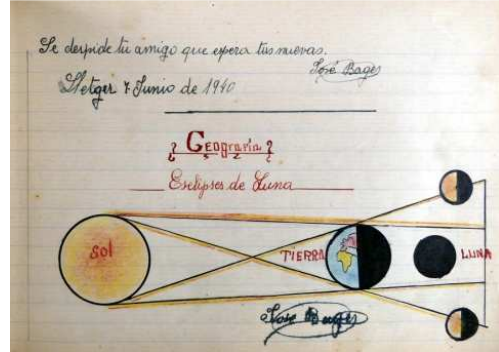 Se despide tu amigo que espera tus nuevas.
José Bages
Sletger 7 Junio de 1940
Geografía
Esclipses de Luna
Sol
TIERRA
LUNA
José Bages